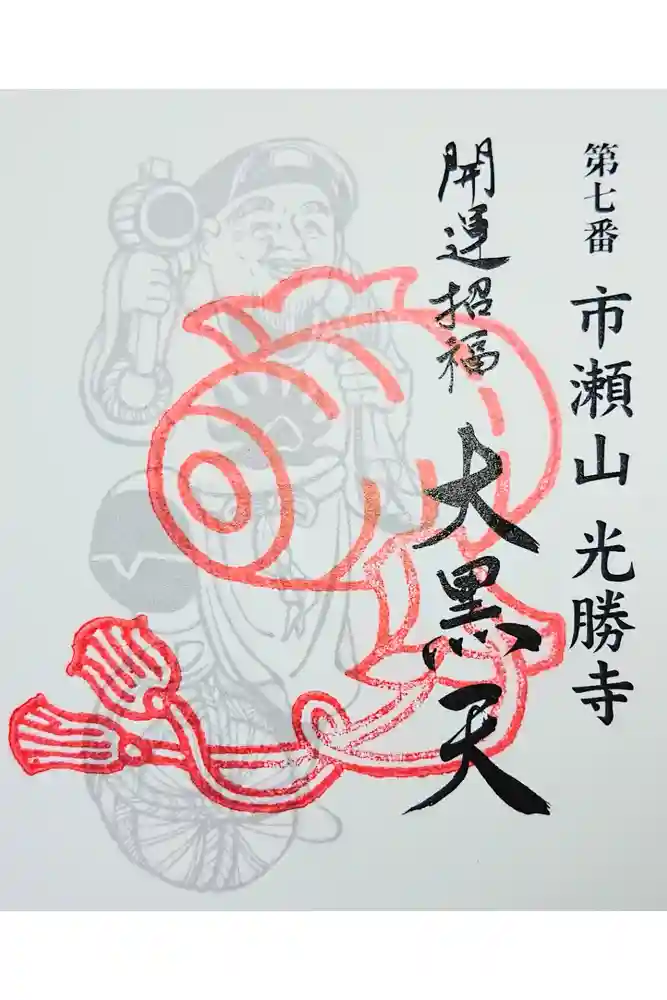 第七番 市瀬山 光勝寺
開運招福 大黒天